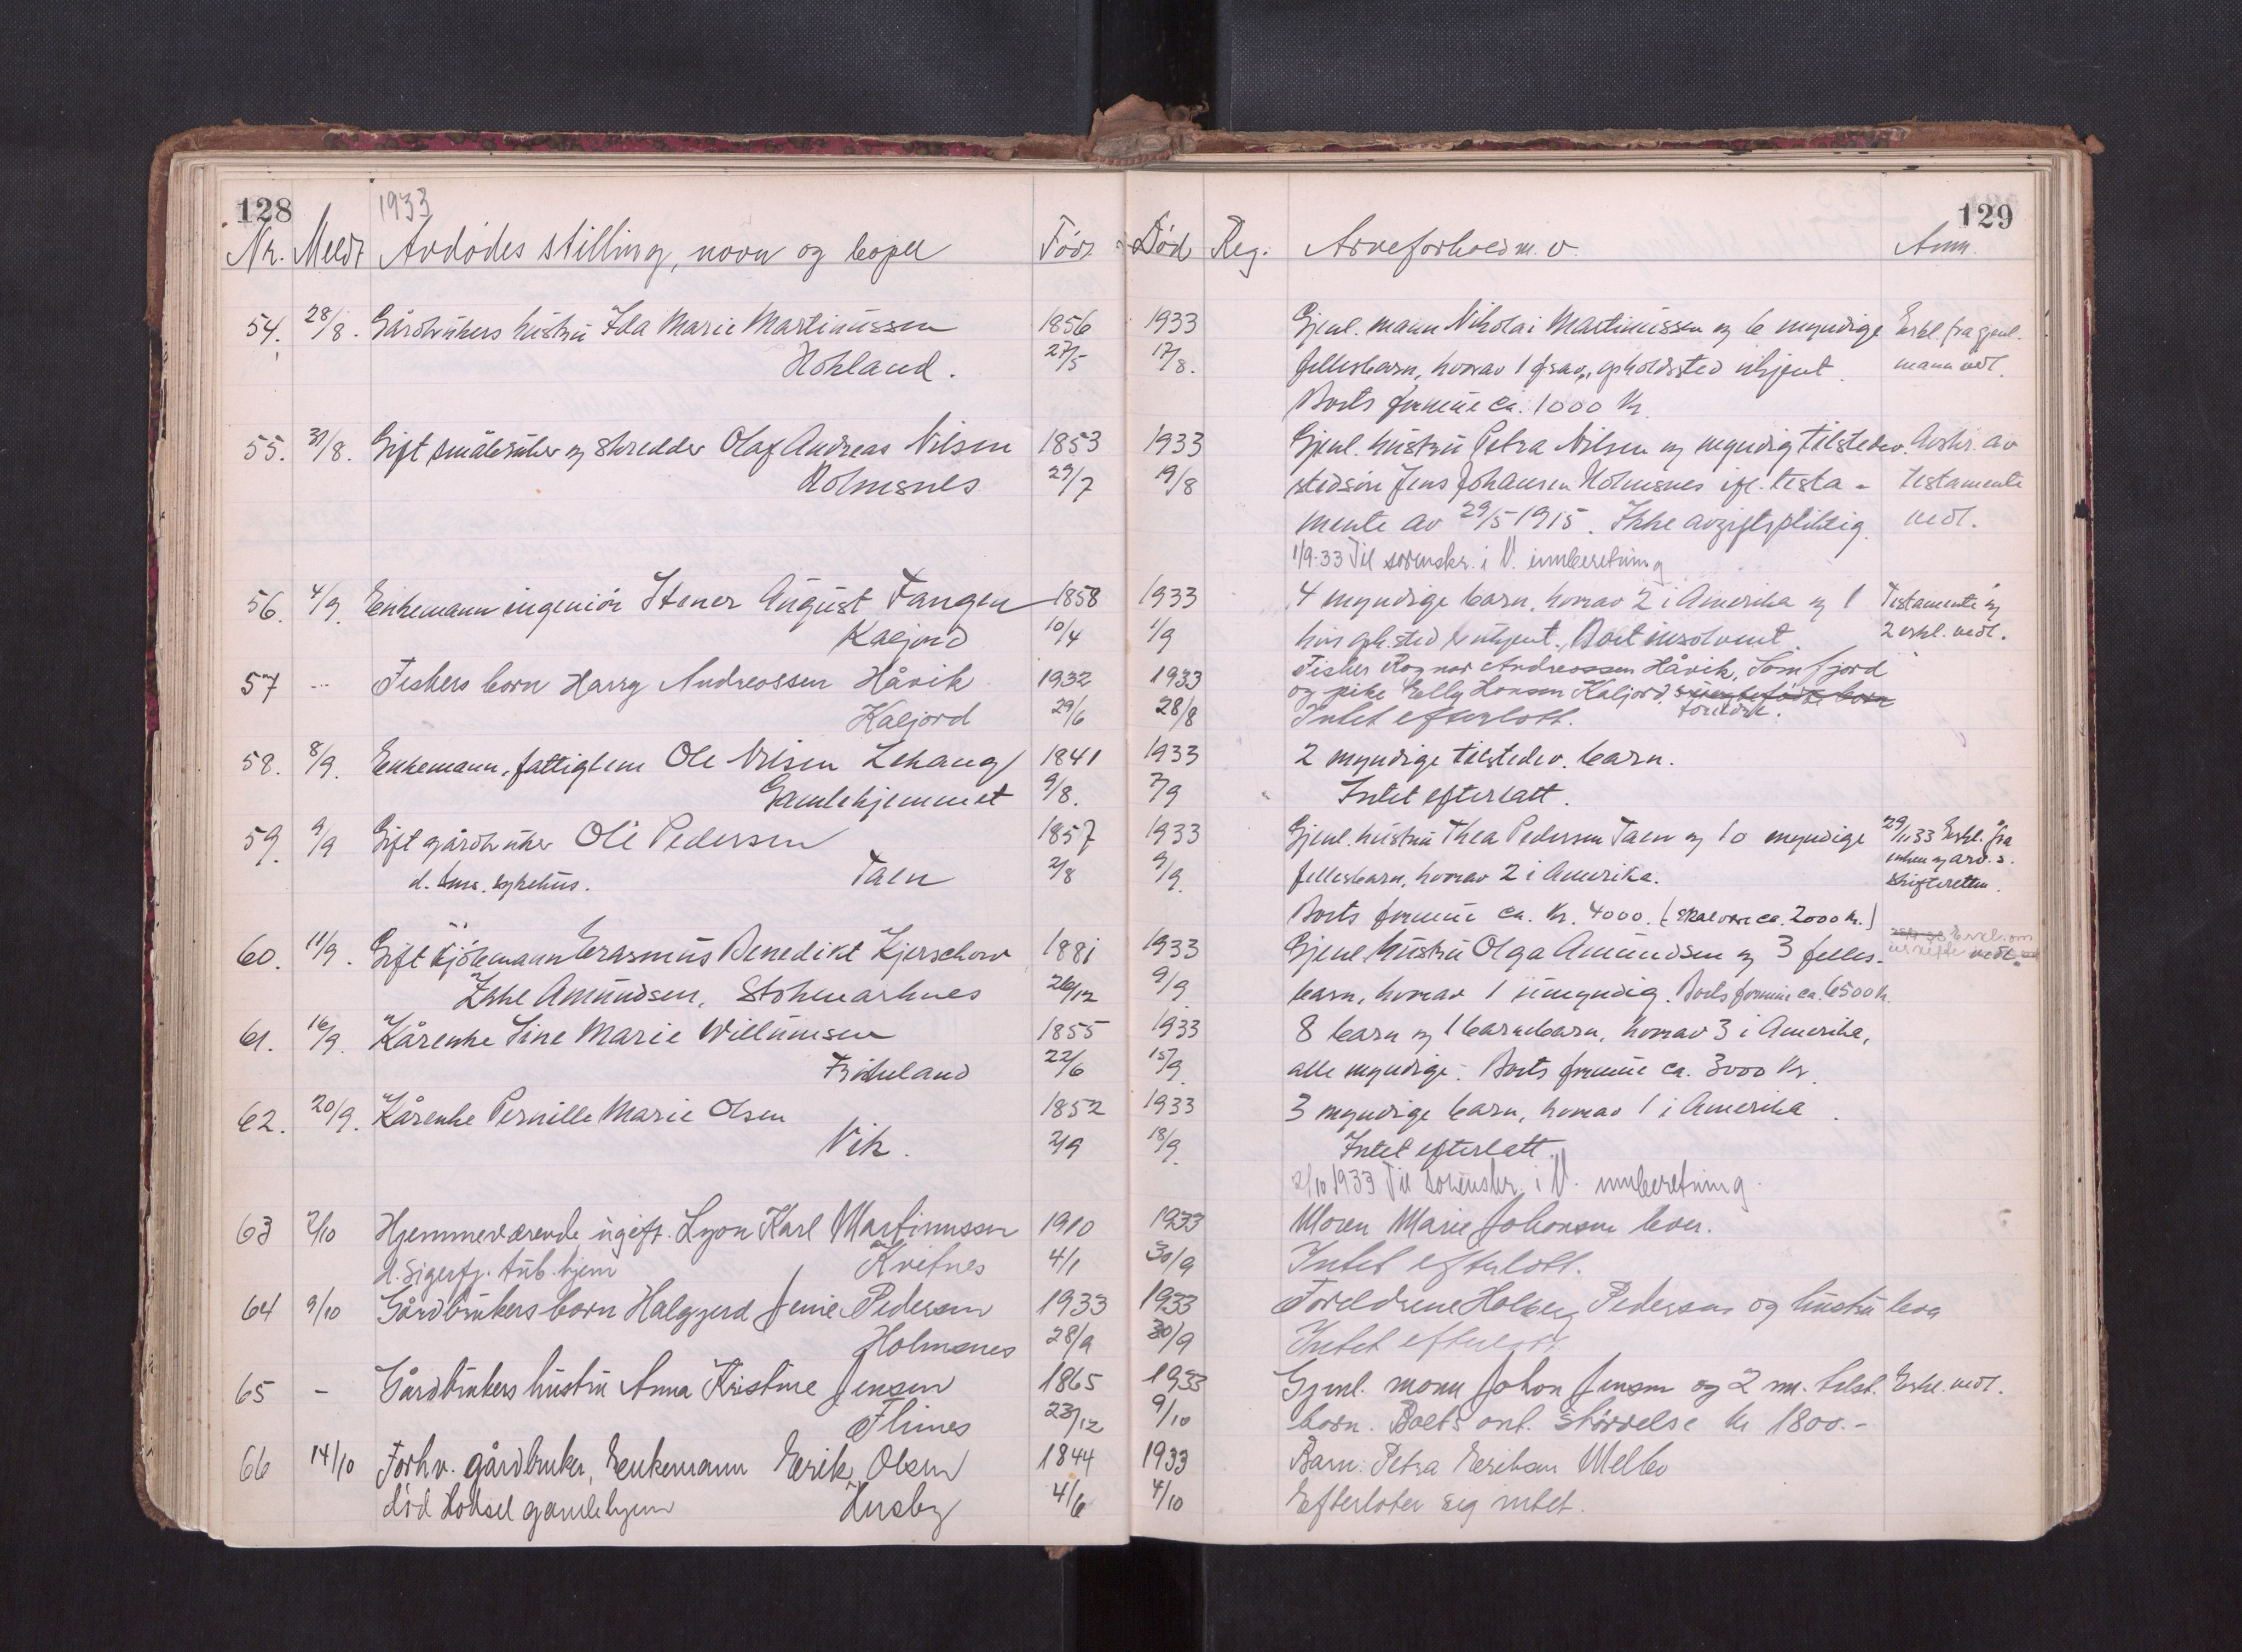 128
1933
Nr. Meldt Avdødes stilling, navn og bopel Född Död Reg. Arveforhold m.v. Anm.
129
54. 28/8. Gårdbrukers hustru Ida Marie Martinussen 1856 1933 Gjenl. mann Nikolai Martinussen og 6 myndige Erkl. fra gjenl.
Hokland. 27/5 17/8. fellesbarn, hvorav 1 frav., opholdssted ukjent. mann vedl.
Boets formue ca. 1000 Kr.
55. 31/8. Gift småbruker og skredder Olaf Andreas Nilsen 1853 1933 Gjenl. hustru Petra Nilsen og myndig tilstedev. Avskr. av
Holmsnes 29/7 19/8 stedsøn Jens Johansen Holmsnes ifl. testa- testamente
mente av 29/5 1915. Ikke avgiftspliktig. vedl.
1/9-33 Til sorenskr. i V. innberetning
56. 4/9. Enkemann ingeniör Stener August Fangen 1858 1933 4 myndige barn, hvorav 2 i Amerika og 1 Testamente og
Kaljord 10/4 1/9 hvis oph.sted er ukjent. Boet insolvent. 2 erkl. vedl.
57 - Fiskers barn Harry Andreassen Håvik 1932 1933 Fisker Ragnar Andreassen Håvik, Sørfjord
og pike Elly Hansen Kaljord uektefødte barn
Kaljord 29/6 28/8 Intet efterlatt. foreldre.
58. 8/9. Enkemann, fattiglem Ole Nilsen Lekang 1841 1933 2 myndige tilstedev. barn.
Gamlehjemmet 9/8. 7/9 Intet efterlatt.
59. 9/9 Gift gårdbruker Ole Pedersen 1857 1933 Gjenl. hustru Thea Pedersen Taen og 10 myndige 29/11 33 Erkl. fra
enken og arv. s.
d. sykehus. Taen 2/8 9/9. fellesbarn, hvorav 2 i Amerika. skifteretten.
Boets formue ca. Kr. 4000. (skal være ca. 2000 kr.)
60. 11/9. Gift kjöbmann Erasmus Benedikt Kjerschow 1881 1933 Gjenl. hustru Olga Amundsen og 3 felles- Erkl. om
uskifte vedl.
Zahl Amundsen, Stokmarknes 26/12 9/9 barn, hvorav 1 umyndig. Boets formue ca. 6500 Kr.
61. 16/9. Kårenke Sine Marie Willumsen 1855 1933 8 barn og 1 barnebarn, hvorav 3 i Amerika,
Friskeland 22/6 15/9. alle myndige. Boets formue ca. 3000 Kr.
62. 20/9. Kårenke Pernille Marie Olsen 1852 1933 3 myndige barn, hvorav 1 i Amerika.
Vik. 2/9 18/9. Intet efterlatt.
2/10 1933 Til sorenskr. i V. innberetning.
63 2/10 Hjemmeværende ugift. Lyon Karl Martinussen 1910 1933 Moren Marie Johansen lever.
d. Sigerfj. tub.hjem Kvitnes 4/1 30/9 Intet efterlatt.
64 9/10 Gårdbrukers barn Halgjerd Jenie Pedersen 1933 1933 Foreldrene Holberg Pedersen og hustru leva
Holmsnes 28/9 30/9 Intet efterlatt
65 - Gårdbrukers hustru Anna Kristine Jensen 1865 1933 Gjenl. mann Johan Jensen og 2 m. tilst. Erkl. vedl.
Flines 23/12 9/10 barn. Boets ant. størrelse kr 1800.-
66 14/10 Forhv. gårdbruker, Enkemann Eerik Olsen 1844 1933 Barn: Petra Eriksen Melbo
död Hadsel gamlehjem Husby 4/6 4/10 Efterlater sig intet.